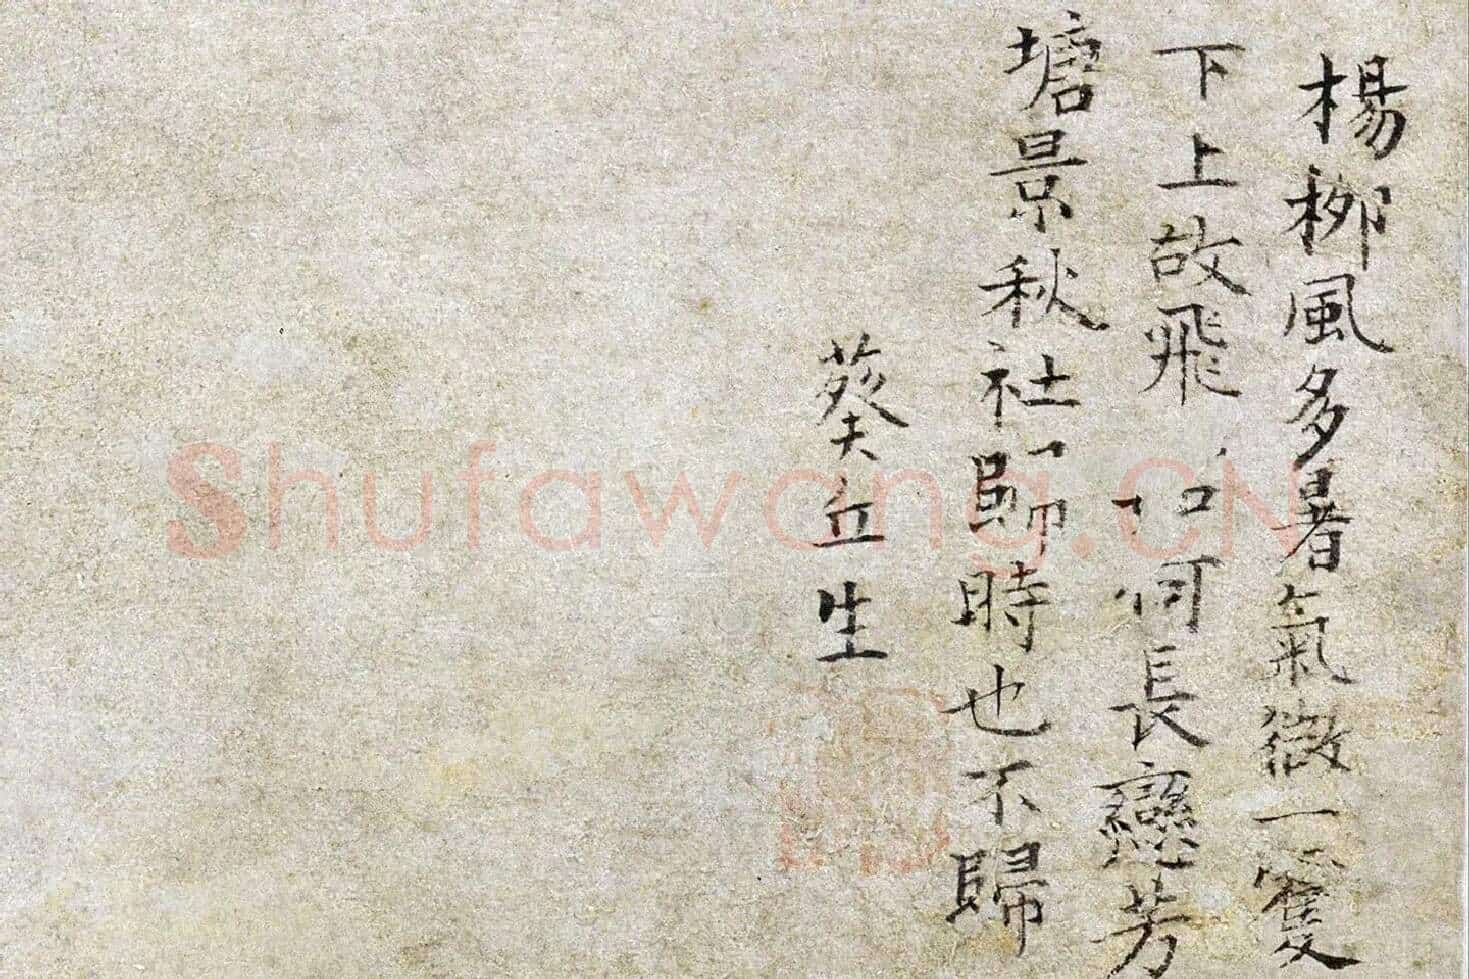 楊栁風多暑氣微一雙
下上故飛〻如何長戀芳
塘景秋社歸時也不歸
葵丘生
Shufawang.CN